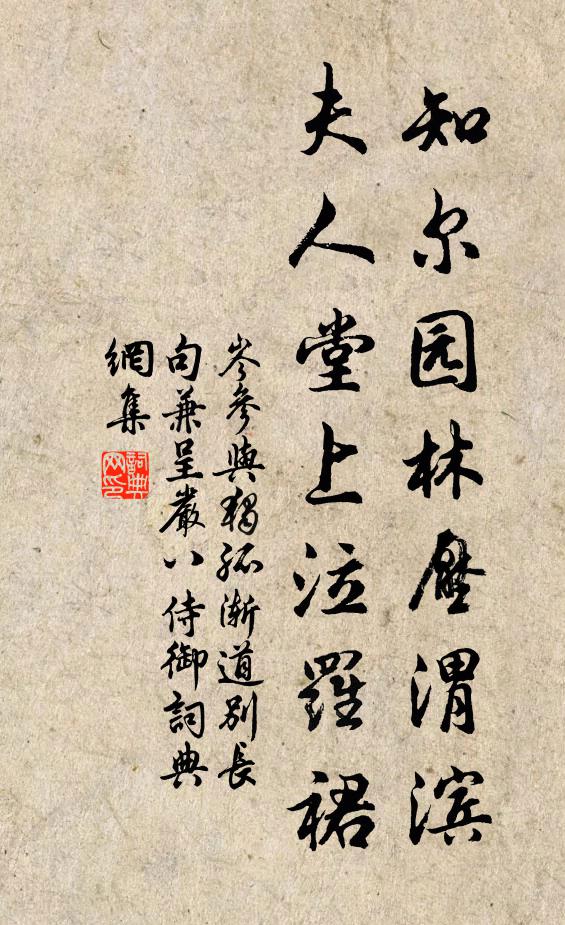 知尔园林压渭滨
夫人堂上泣羅裙
岑參與獨孤漸道別長
句兼呈嚴八侍御詞典
網集
詞典
网印